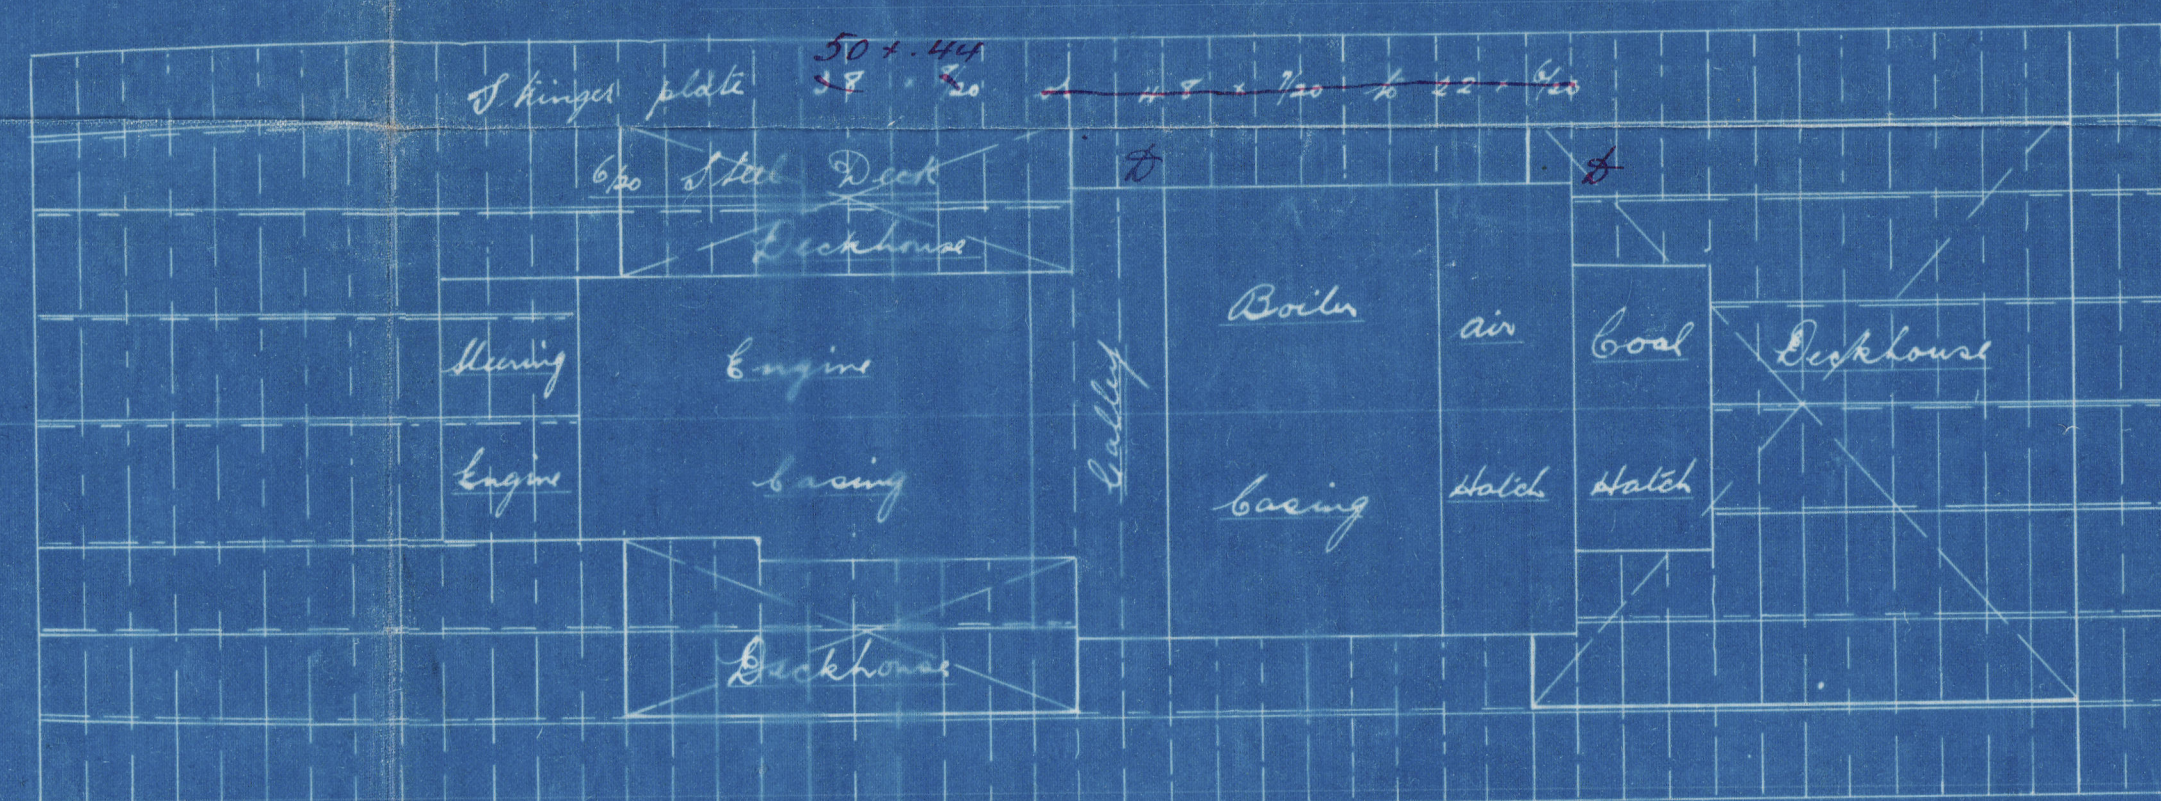 50 × .44
Stringer plate 58 × 9/20 & 48 × 7/20 to 22 × 6/20
D D
6/20 Steel Deck
Deckhouse
Steering Engine
Engine Casing
Galley
Boiler Casing
air Hatch
Coal Hatch
Deckhouse
Deckhouse